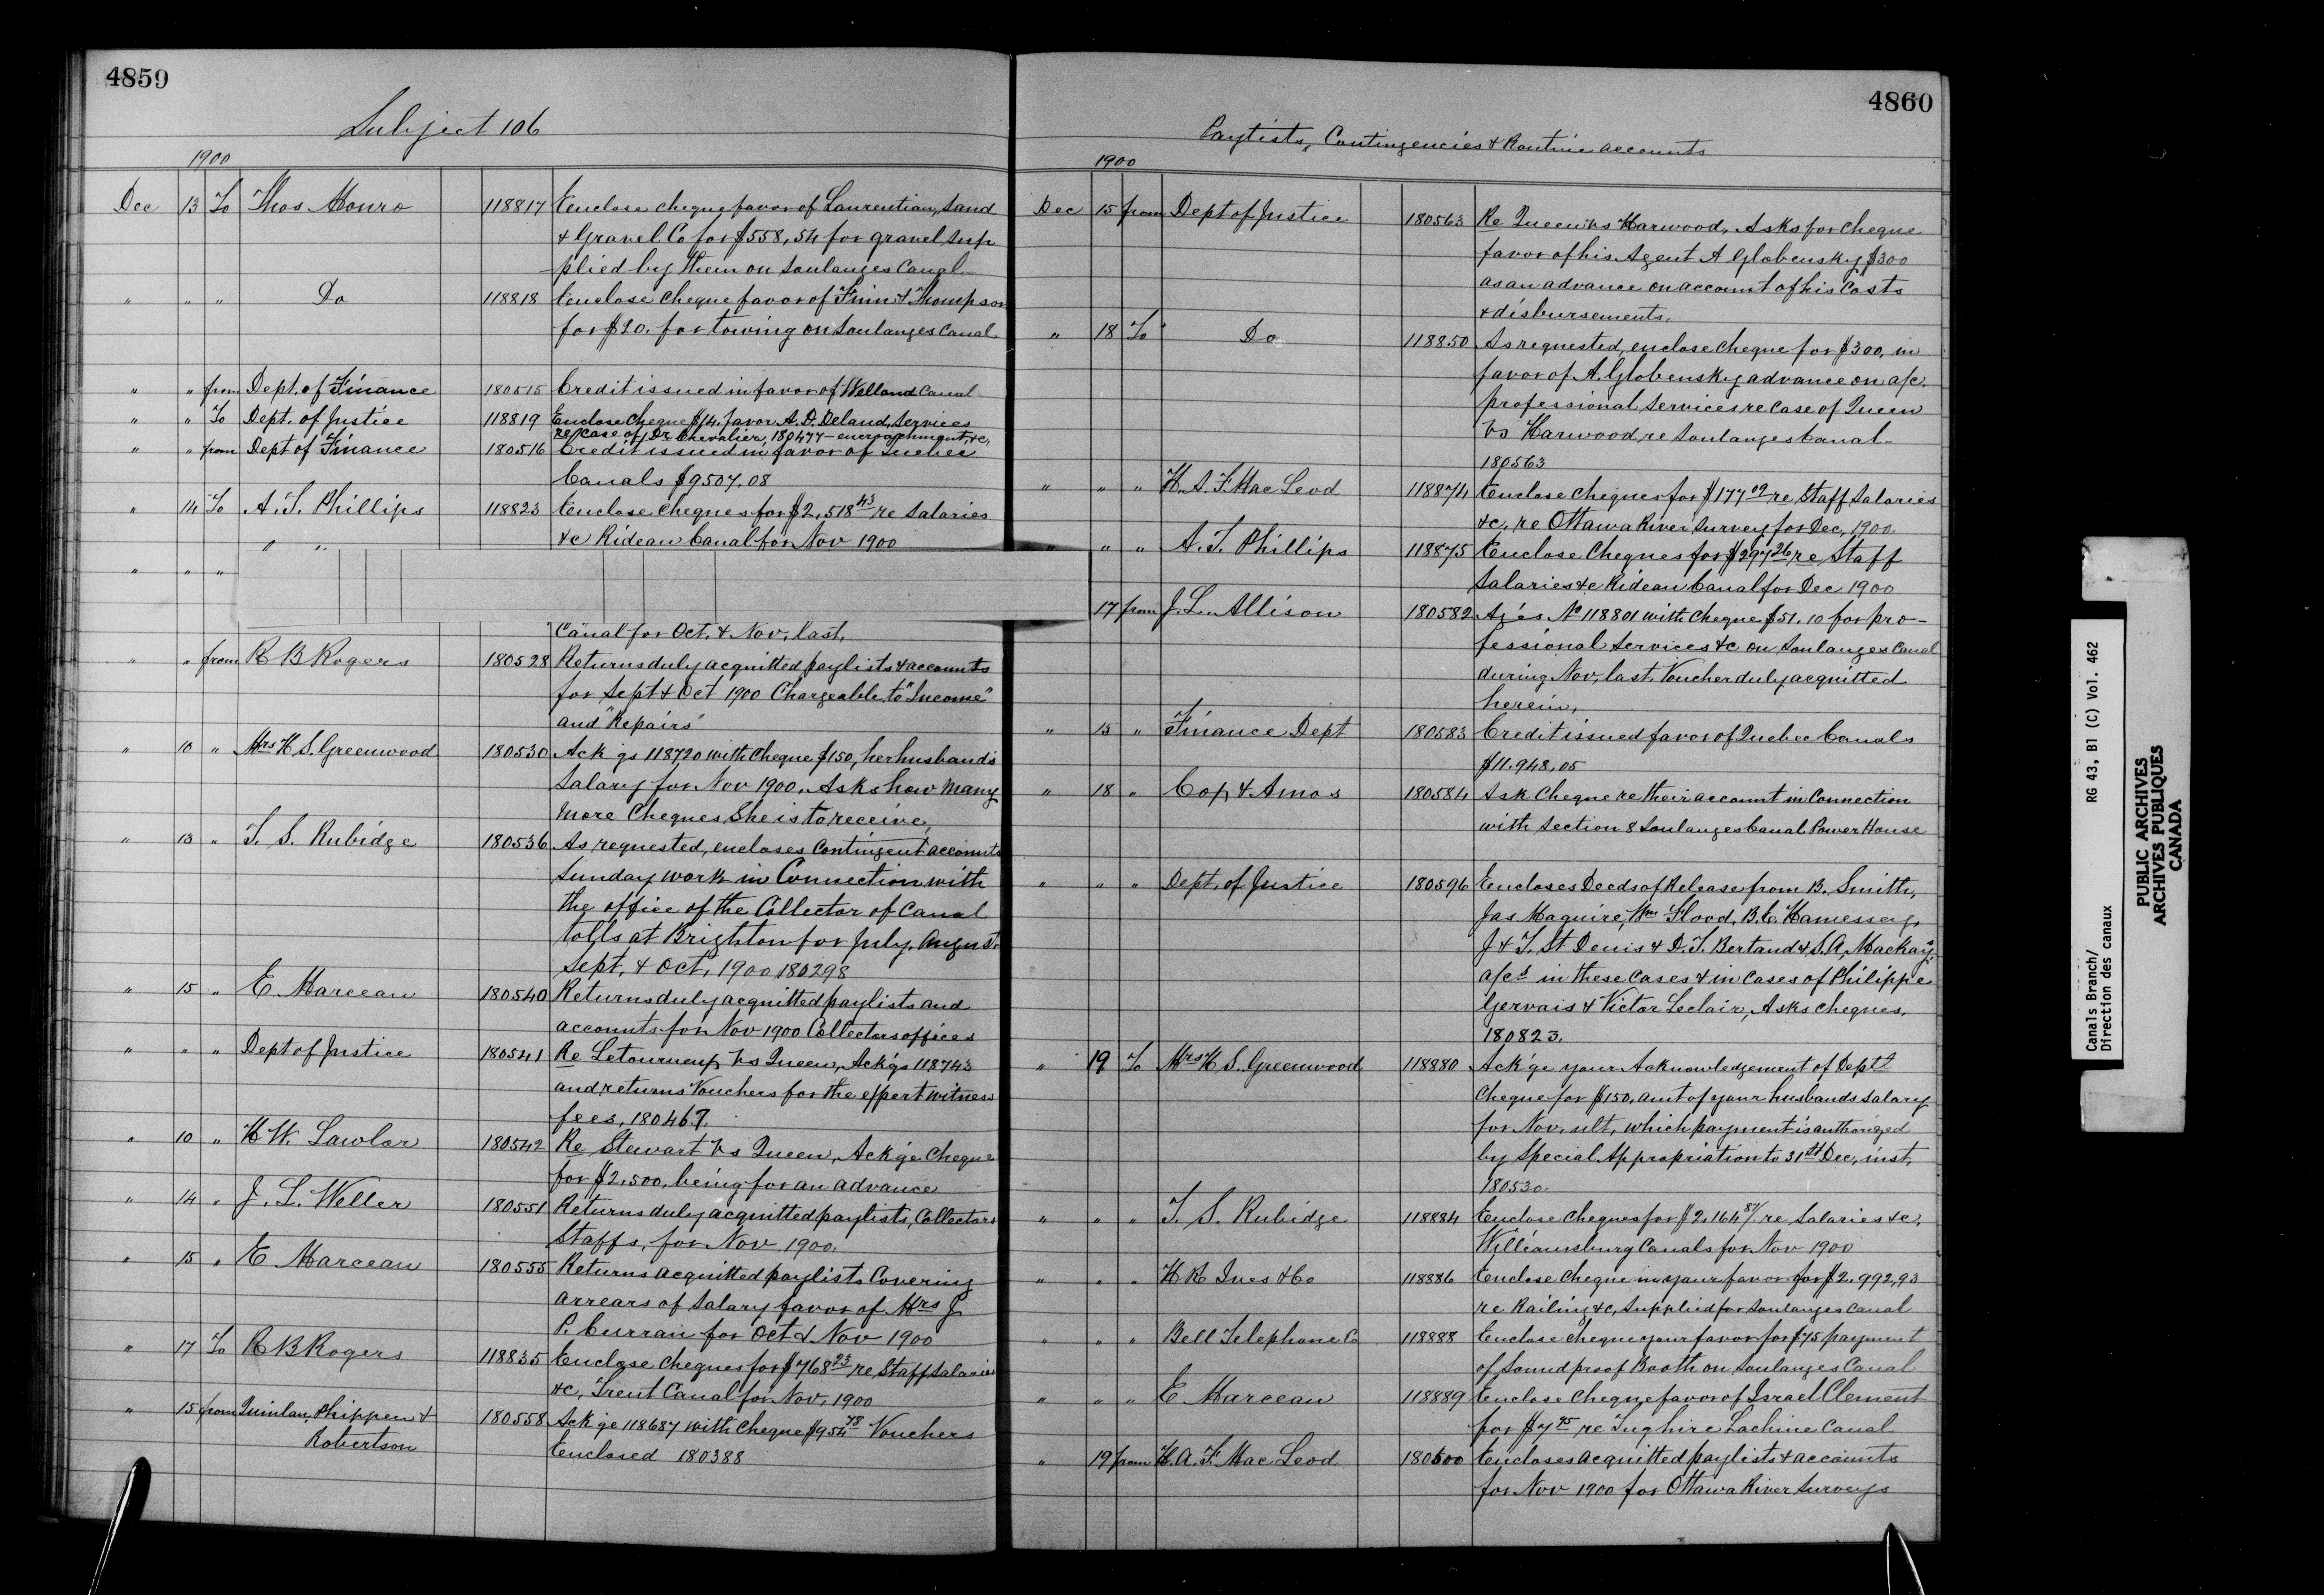 4859
Subject 106
1900
Dec 13 To Thos Monro 118817 Enclose cheque favor of Laurentian, Sand
& Gravel Co for $558,54 for gravel sup
plied by them on Soulanges Canal
" " " Do 118818 Enclose cheque favor of Finn & Thompson
for $20. for towing on Soulanges Canal
" " from Dept. of Finance 180515 Credit issued in favor of Welland Canal
" " To Dept. of Justice 118819 Enclose Cheque $14. favor A. D. Deland, Services
re case of Dr Chevalier, 180477 - encroachment, &c,
" " from Dept of Finance 180516 Credit issued in favor of Quebec
Canals $9507.08
" 14 To A. T. Phillips 118823 Enclose cheques for $2,518 43 re Salaries
&c Rideau Canal for Nov 1900
" "
" " "
Canal for Oct. & Nov, last,
" " from R B Rogers 180528 Returns duly acquitted paylists & accounts
for Sept & Oct 1900 Chargeable to "Income"
and "Repairs"
" 10 " Mrs H S. Greenwood 180530 Ack'gs 118720 with cheque $150, her husband's
Salary for Nov 1900, Asks how many
more Cheques She is to receive,
" 13 " T. S. Rubidge 180536 As requested, encloses Contingent accounts
Sunday work in Connection with
the office of the Collector of Canal
tolls at Brighton for July, August
Sept. & Oct. 1900 180298
" 15 " E Marceau 180540 Returns duly acquitted paylists and
accounts for Nov 1900 Collectors offices
" " " Dept of Justice 180541 Re Letourneux vs Queen, Ack'gs 118743
and returns Vouchers for the expert witness
fees, 180467.
" 10 " H W. Lawlor 180542 Re Stewart vs Queen, Ack'ge Cheque
for $2.500. being for an advance
" 14 " J. L. Weller 180551 Returns duly acquitted paylists, Collectors
Staffs, for Nov 1900.
" 15 " E Marceau 180555 Returns acquitted paylists Covering
arrears of Salary favor of Mrs J.
P. Curran for Oct & Nov 1900
" 17 To R B Rogers 118835 Enclose cheques for $768 23 re Staff Salaries
&c, Trent Canal for Nov, 1900
" 15 from Quinlan, Phippen & 180558 Ack'ge 118687 with Cheque $954 78 Vouchers
Robertson Enclosed 180388
4860
Paylists, Contingencies & Routine accounts
1900
Dec 15 from Dept of Justice 180563 Re Queen vs Harwood, Asks for Cheque
favor of his Agent A Globensky $300
as an advance on account of his Costs
& disbursements,
" 18 To Do 118850 As requested, enclose cheque for $300. in
favor of A. Globensky advance on a/c.
professional Services re Case of Queen
vs Harwood, re Soulanges Canal-
180563
" " " H. A. F. MacLeod 118874 Enclose Cheques for $177 09 re, Staff Salaries
&c, re Ottawa River Survey for Dec, 1900.
" " " A. T. Phillips 118875 Enclose Cheques for $297 26 re Staff
Salaries &c Rideau Canal for Dec 1900
17 from J. L. Allison 180582 No 118801 with Cheque $51.10 for pro-
fessional Services &c on Soulanges Canal
during Nov, last, Voucher duly acquitted
herein,
" 15 " Finance Dept 180583 Credit issued favor of Quebec Canals
$11.948,05
" 18 " Cox & Amos 180584 Ask Cheque re their account in Connection
with Section 8 Soulanges Canal Power House
" " " Dept. of Justice 180596 Encloses Deeds of Release from B. Smith,
Jas Maguire, Wm Flood, B. C.
J & T. St Denis & D. T. Bertand & S. A. Mackay,
a/cs in these cases & in cases of Philippe
Gervais & Victor Leclair, Asks cheques,
180823.
" 19 To Mrs H S. Greenwood 118880 Ack'ge your Acknowledgement of Deptl
Cheque for $150, amt of your husbands salary
for Nov, ult, which payment is authorized
by Special Appropriation to 31st Dec, inst,
180530.
" " " T. S. Rubidge 118884 Enclose Cheques for $2,164 87 re Salaries &c,
Williamsburg Canals for Nov 1900
" " " H R Ives & Co 118886 Enclose cheque in your favor for $2.992,93
re Railing &c, supplied for Soulanges Canal
" " " Bell Telephone Co 118888 Enclose cheque your favor for $75 payment
of Sound proof Booth on Soulanges Canal
" " " E Marceau 118889 Enclose Cheque favor of Israel Clement
for $7 95 re Tug hire Lachine Canal
" 19 from H. A. F. MacLeod 180600 Encloses acquitted paylists & accounts
for Nov 1900 for Ottawa River Surveys
Canals Branch/ RG 43, B1 (C) Vol. 462
Direction des canaux
PUBLIC ARCHIVES
ARCHIVES PUBLIQUES
CANADA